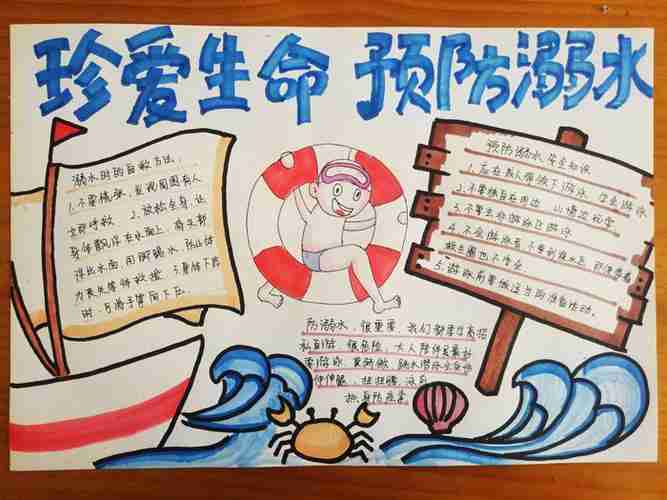 珍爱生命 预防溺水
溺水时的自救方法:
1.不要慌张,发现周围有人
立即呼救 2.放松全身,让
身体飘浮在水面上,将头部
浮出水面,用脚踢水,防止体
力丧失等待救援 3.身体下沉
时,可将手掌向下压
预防溺水安全知识
1.应在成人带领下游泳,学会游泳
2.不要独自在河边、山塘边玩耍
3.不要去非游泳区游泳
4.不会游泳者,不要到深水区,即使带着
救生圈也不安全
5.游泳前要做适当的准备活动。
防溺水,很重要,我们都要
私自游,很危险,大人陪伴是最好
要游泳
伸伸腿,扭扭腰